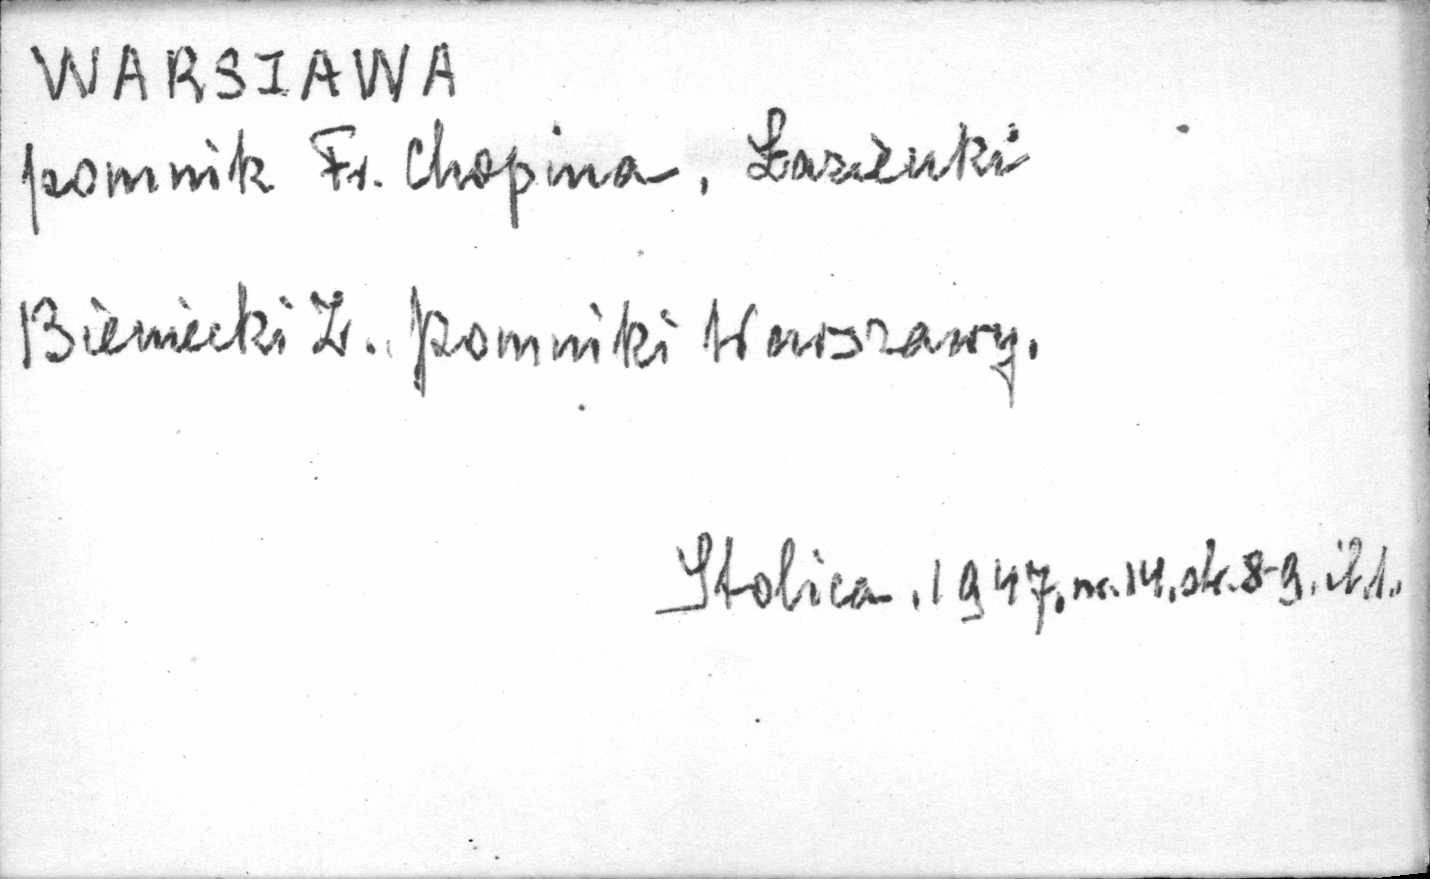 WARSZAWA
pomnik Fr. Chopina, Łazienki
Bieniecki Z. Pomniki Warszawy.
Stolica. 1947. nr. 14. str. 8-9. il. 1.